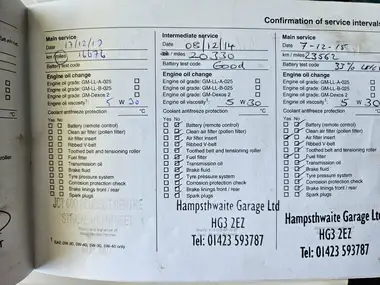 Confirmation of service intervals
Main service
Date 17/12/13
km / miles 14676
Battery test code
Engine oil change
Engine oil grade: GM-LL-A-025
Engine oil grade: GM-LL-B-025
Engine oil grade: GM-Dexos 2
Engine oil viscosity¹ 5 W 30
Coolant antifreeze protection °C
Yes No
Battery (remote control)
Clean air filter (pollen filter)
Air filter insert
Ribbed V-belt
Toothed belt and tensioning roller
Fuel filter
Transmission oil
Brake fluid
Tyre pressure system
Corrosion protection check
Brake linings front / rear
Spark plugs
Intermediate service
Date 08/12/14
km / miles 20330
Battery test code Good
Engine oil change
Engine oil grade: GM-LL-A-025
Engine oil grade: GM-LL-B-025
Engine oil grade: GM-Dexos 2
Engine oil viscosity¹ 5 W 30
Coolant antifreeze protection °C
Yes No
Battery (remote control)
Clean air filter (pollen filter)
Air filter insert
Ribbed V-belt
Toothed belt and tensioning roller
Fuel filter
Transmission oil
Brake fluid
Tyre pressure system
Corrosion protection check
Brake linings front / rear
Spark plugs
Hampsthwaite Garage Ltd
HG3 2EZ
Tel: 01423 593787
Main service
Date 7-12-15
km / miles 23562
Battery test code 33%
Engine oil change
Engine oil grade: GM-LL-A-025
Engine oil grade: GM-LL-B-025
Engine oil grade: GM-Dexos 2
Engine oil viscosity¹ 5 W 30
Coolant antifreeze protection °C
Yes No
Battery (remote control)
Clean air filter (pollen filter)
Air filter insert
Ribbed V-belt
Toothed belt and tensioning roller
Fuel filter
Transmission oil
Brake fluid
Tyre pressure system
Corrosion protection check
Brake linings front / rear
Spark plugs
Hampsthwaite Garage Ltd
HG3 2EZ
Tel: 01423 593787